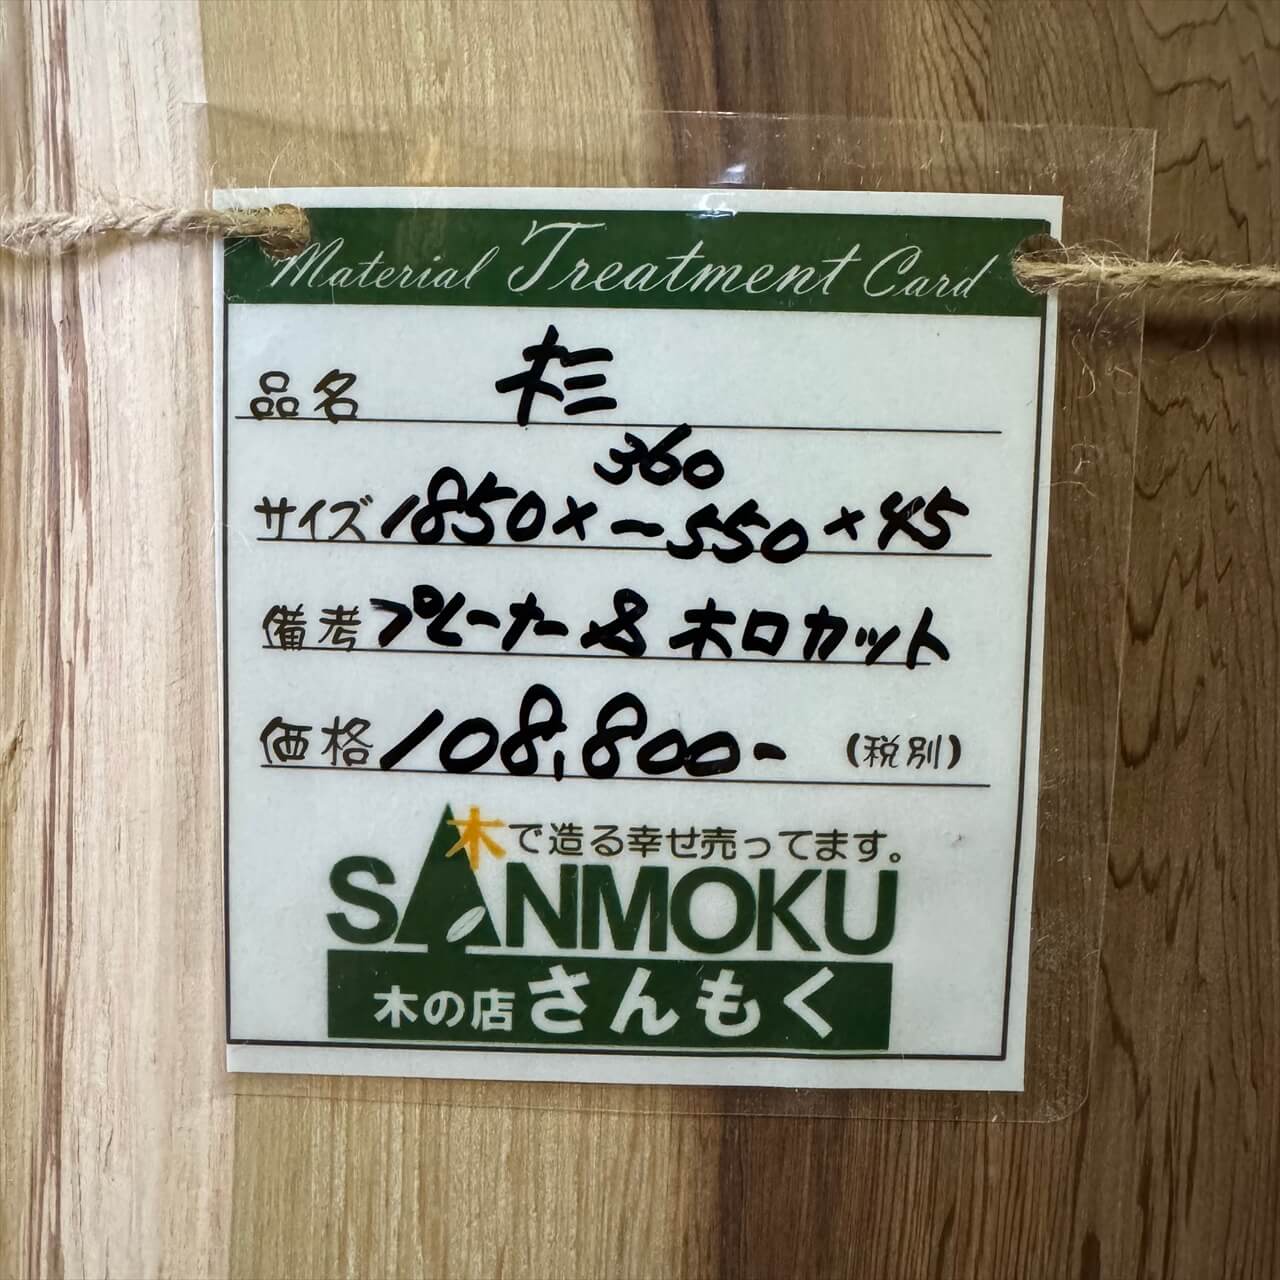 Material Treatment Card
品名 杉
360
サイズ 1850×~550×45
備考 プレーナー&木口カット
価格 108,800- (税別)
木で造る幸せ売ってます。
SANMOKU
木の店さんもく